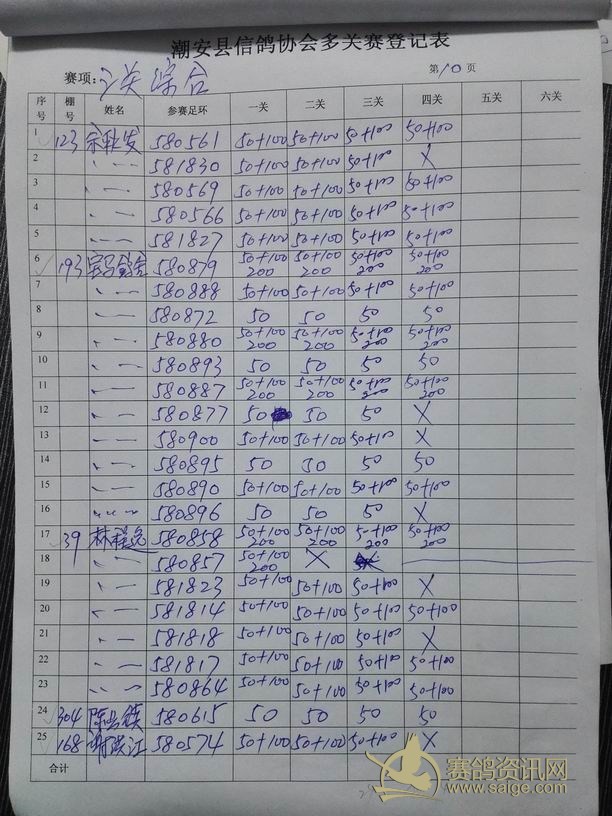 潮安县信鸽协会多关赛登记表
赛项: 关综合 第10页
序号 棚号 姓名 参赛足环 一关 二关 三关 四关 五关 六关
1 123 580561 50+100 50+100 50+100 50+100
2 〃 — 581830 50+100 50+100 50+100 X
3 〃 — 580569 50+100 50+100 50+100 50+100
4 〃 — 580566 50+100 50+100 50+100 50+100
5 〃 — 581827 50+100 50+100 50+100 50+100
6 193 580879 50+100 200 50+100 200 50+100 200 50+100 200
7 〃 — 580888 50+100 50+100 50+100 50+100
8 〃 — 580872 50 50 50 50
9 〃 — 580880 50+100 200 50+100 200 50+100 200 50+100 200
10 〃 — 580893 50 50 50 50
11 〃 — 580887 50+100 200 50+100 200 50+100 200 50+100 200
12 〃 — 580877 50 50 50 X
13 〃 — 580900 50+100 50+100 50+100 X
14 〃 — 580895 50 50 50 50
15 〃 — 580890 50+100 50+100 50+100 50+100
16 〃 — 580896 50 50 50 X
17 39 林 580858 50+100 200 50+100 200 50+100 200 50+100 200
18 〃 — 580857 50+100 200 X
19 〃 — 581823 50+100 50+100 50+100 X
20 〃 — 581814 50+100 50+100 50+100 50+100
21 〃 — 581818 50+100 50+100 50+100 X
22 〃 — 581817 50+100 50+100 50+100 50+100
23 〃 — 580864 50+100 50+100 50+100 50+100
24 304 陈 580615 50 50 50 50
25 168 谢洪江 580574 50+100 50+100 50+100 X
合计
赛鸽资讯网
www.saige.com